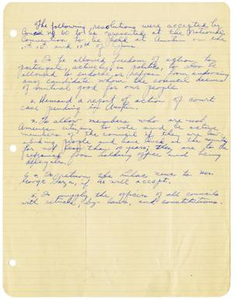 The following resolutions were accepted by
Council # 60 to be presented at the National
Convention to be held at Austin on the
9th, 10th and 11th of June.
1. To be allowed freedom of action to
participate, actively in politics and also to be
allowed to endorse or refrain from endorsing any
candidate when the council deems
of mutual good for our people.
2. Demand a report of action of court
case pending for
3. To allow members who are not
American citizens to vote and be active
members of the council if they are law
abiding people and have lived in the country
for not less than 10 years; they are to be
refrained from holding office and being
delegates.
4. To
George Garza, if he will accept.
5. To supply the officers of all councils
with rituals, by-laws, and constitutions.